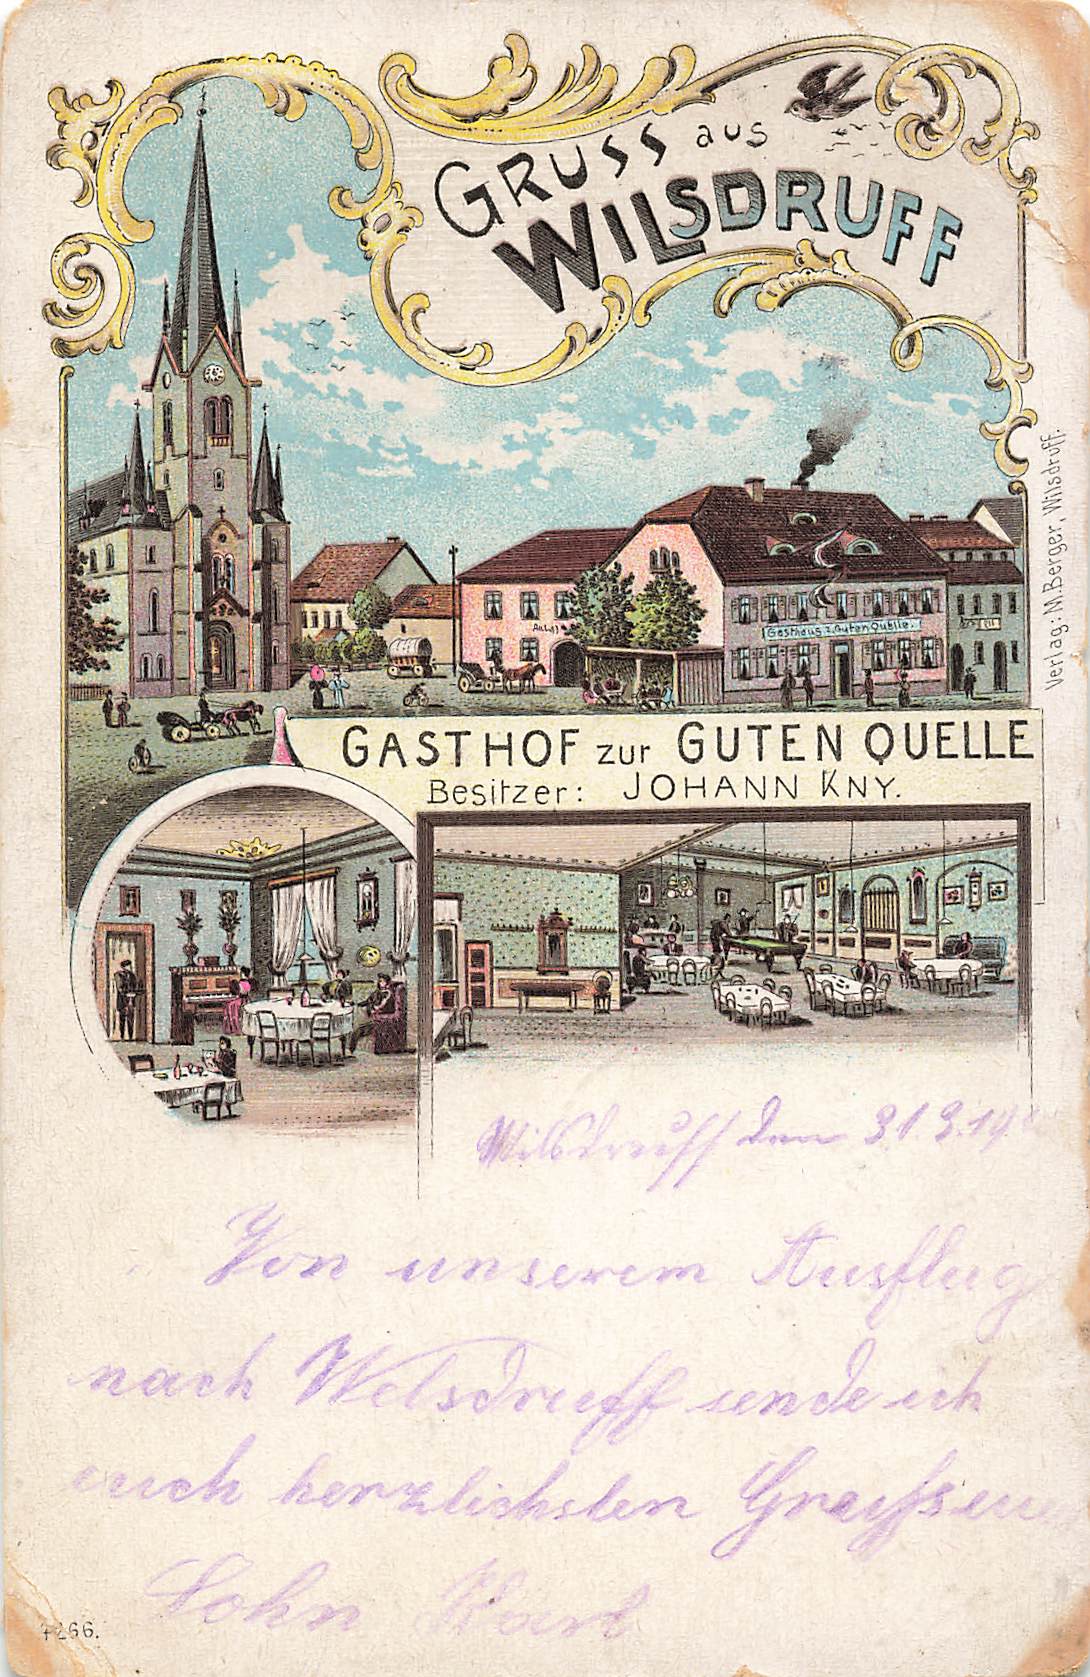 GRUSS aus
WILSDRUFF
Gasthaus z. Guten Quelle.
GASTHOF zur GUTEN QUELLE
Besitzer: JOHANN KNY.
Verlag: M. Berger, Wilsdruff.
Wilsdruff den 31.3.19
Von unserem Ausflug
nach Wilsdruff sende ich
euch herzlichsten Gruss eue
Sohn Karl
4266.